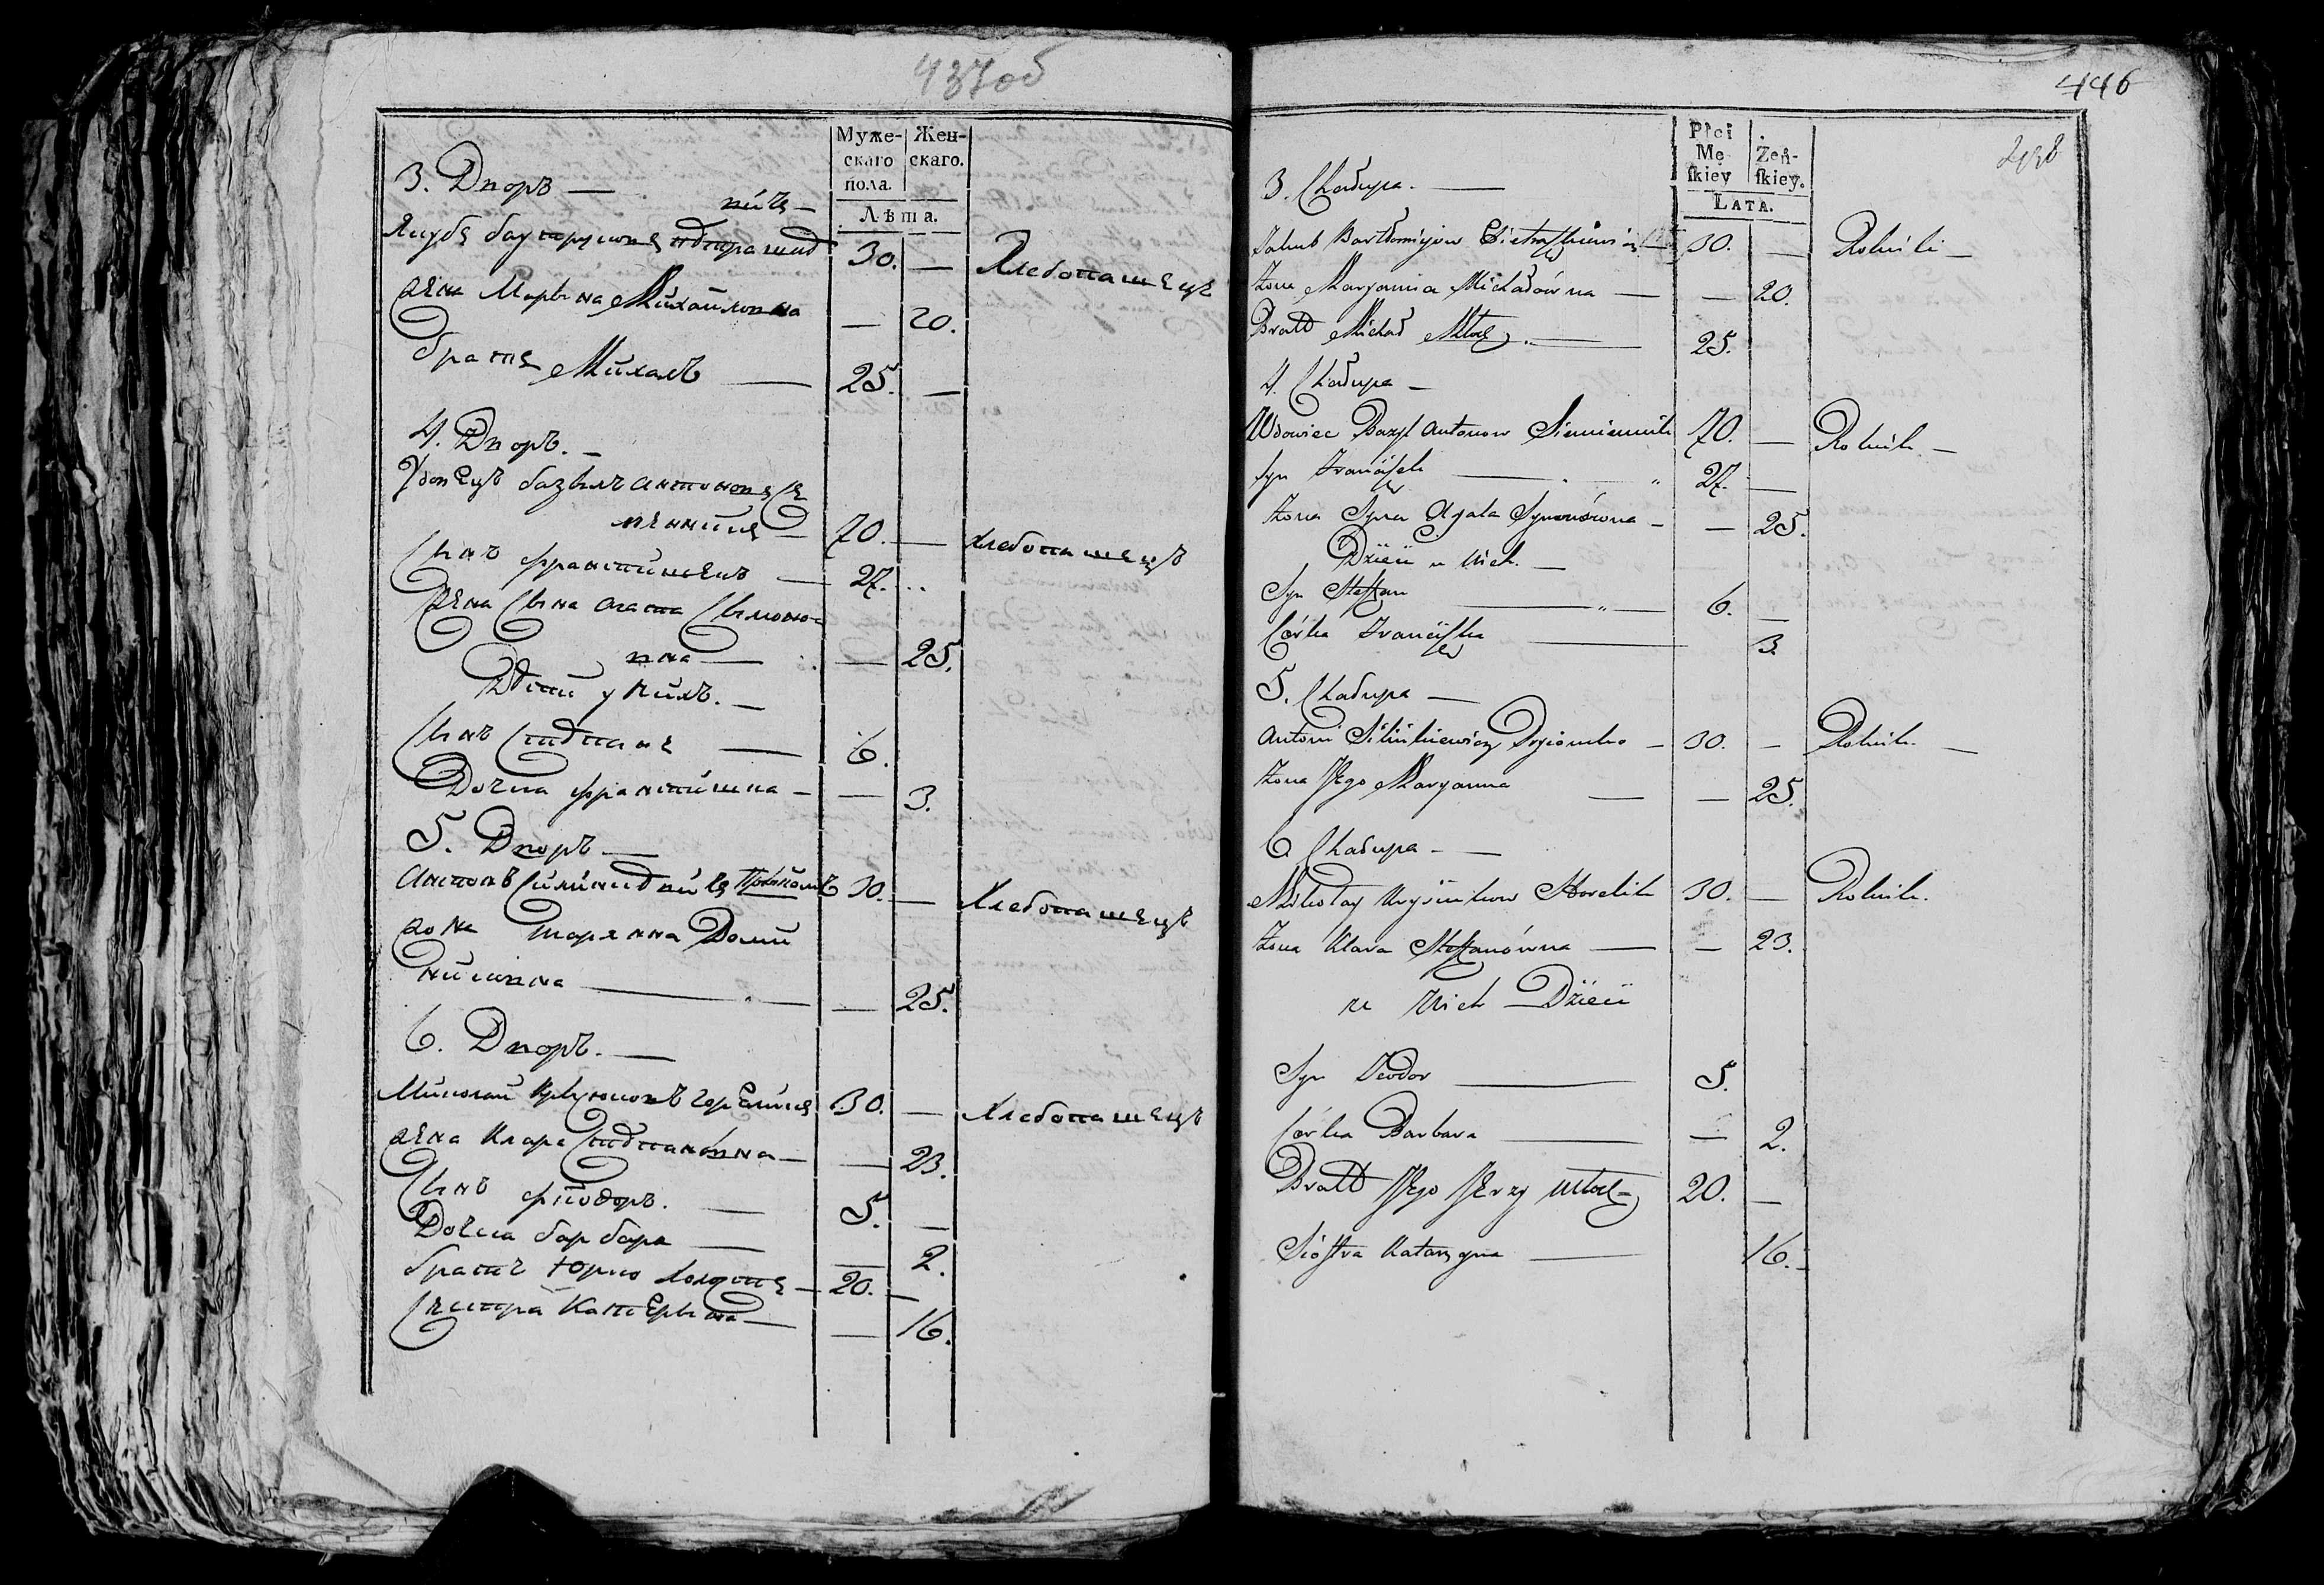 437об
Муже-
скаго
пола.
Жен-
скаго.
Лѣта.
3. Дворъ —
вичъ —
Якубъ Петраше 30. — Хлебопашецъ
жена Марьяна Михайловна — 20.
братъ Михалъ — 25. —
4. Дворъ. —
Удовецъ базыль антоновъ Се
менникъ — 70. — хлебопашецъ
Сынъ францишекъ — 27.
жена Сына агата Сымоно-
вна — — 25.
Дети у нихъ. —
Сынъ Степанъ — 6.
Дочка францишка — — 3.
5. Дворъ —
антонъ 30. — Хлебопашецъ
жона марянна Доми
никовна — — 25.
6. Дворъ. —
Миколай гореликъ 30. — Хлебопашецъ
жена Клара Степановна — — 23.
Сынъ фиодоръ. — 5. —
Дочка барбара — — 2.
братъ Юрко холостъ — 20. —
Сестра Катерына — — 16.
446
438
Płci
Mę
ſkiey
Żeń-
ſkiey.
LATA.
3. Chałupa. —
Jakub Bartłomiejow Pietraszkiewicz 30. — Rolnik —
Żona Maryanna Michałówna — — 20.
Bratt Michał Młod. — 25.
4. Chałupa —
Wdowiec Bazyl Antonow Siemiennik 70. — Rolnik. —
Syn Franciszek — 27. —
Żona Syna Agata Symonówna — — 25.
Dzieci u Nich. —
Syn Steffan — 6. —
Córka Franciszka — 3.
5. Chałupa —
Antoni 30. — Rolnik. —
Żona Jego Maryanna — — 25.
6. Chałupa — —
Mikołay Horelik 30. — Rolnik.
Żona Klara Steffanówna — — 23.
u Nich Dzieci
Syn Teodor — 5.
Córka Barbara — — 2.
Bratt Jego Jerzy Młod — 20. —
Siostra Katarzyna — 16.